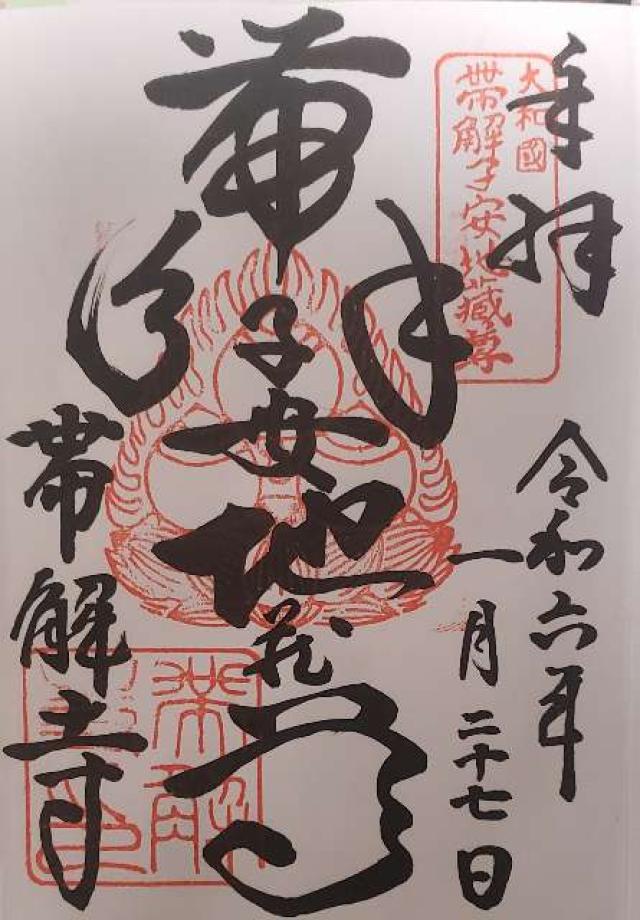 奉拝
大和國
帯解子安地蔵尊
令和六年
一月二十七日
帯
解
子安地蔵尊
帯解寺